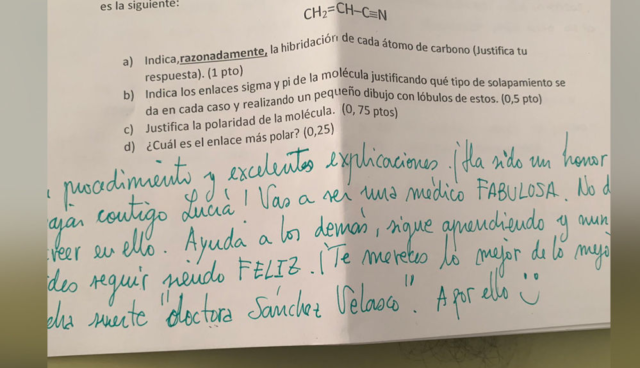 es la siguiente:
CH₂=CH–C≡N
a) Indica,razonadamente, la hibridación de cada átomo de carbono (Justifica tu
respuesta). (1 pto)
b) Indica los enlaces sigma y pi de la molécula justificando qué tipo de solapamiento se
da en cada caso y realizando un pequeño dibujo con lóbulos de estos. (0,5 pto)
c) Justifica la polaridad de la molécula. (0, 75 ptos)
d) ¿Cuál es el enlace más polar? (0,25)
procedimiento y excelentes explicaciones. ¡Ha sido un honor
contigo Lucía! Vas a ser una médico FABULOSA. No d
en ello. Ayuda a los demás, sigue aprendiendo y nun
seguir siendo FELIZ. ¡Te mereces lo mejor de lo mejo
suerte "doctora Sánchez Velasco". A por ello